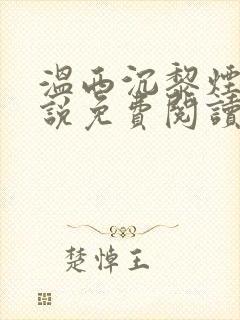 温西沉黎煙
說免費閱讀
楚悼王